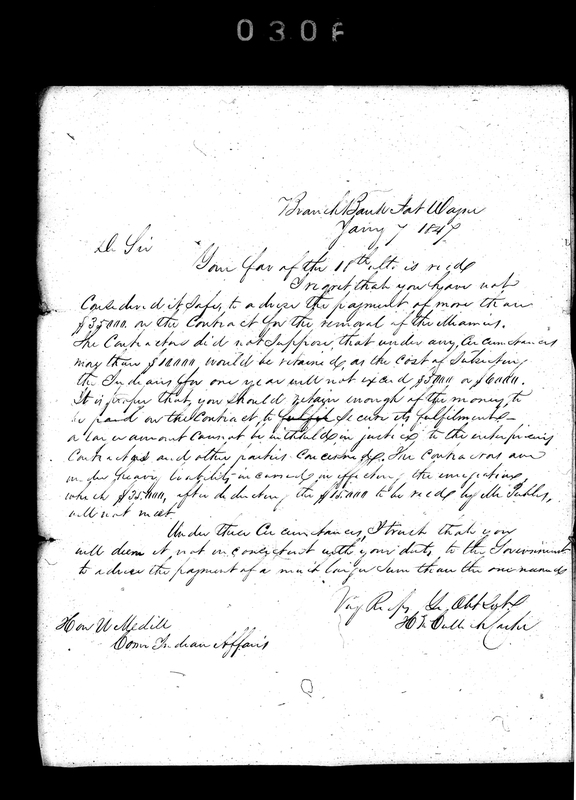 0306
Branch Bank Fort Wayne
Jany 7 1847
Dr Sir
Your fav of the 18th ulto is recd
I regret that you have not
Considered it safe, to advise the payment of more than
$35,000. on the Contract for the removal of the Miamis.
The Contractors did not suppose, that under any Circumstances
more than $10,000 would be retained, as the Cost of Subsisting
the Indians for one year will not exceed $5000 or $6000.
It is proper that, you should retain enough of the money, to
be paid on the Contract, to fulfil secure its fulfilment—
a larger amount cannot be withheld in justice, to the enterprising
Contractors and other parties concerned. The Contractors are
under heavy liabilities incurred in effecting the emigration,
which $35,000, after deducting the $15,000 to be recd by Mr
will not meet
Under these Circumstances, I trust that you
will deem it, not inconsistent with your duty, to the Government
to advise the payment of a much larger sum than the one named
Very Respy Yr Obt Svt
H
Hon W Medill
Comr Indian Affairs